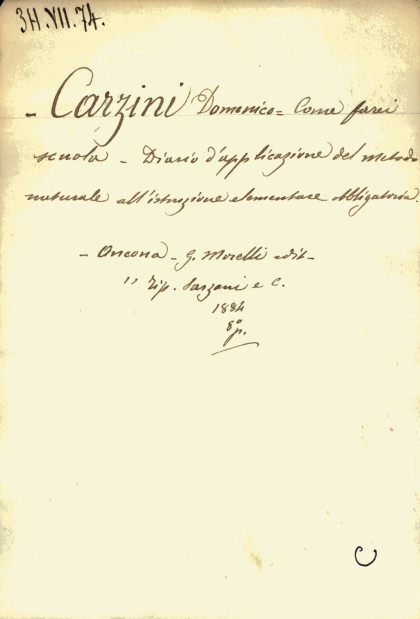 3H.VII.74.
- Carzini Domenico = Come farei
scuola - Diario d'applicazione del metodo
naturale all'istruzione elementare obbligatoria.
- Ancona - G. Morelli edit -
" Tip. Sarzani e C.
1884
8° p.
C